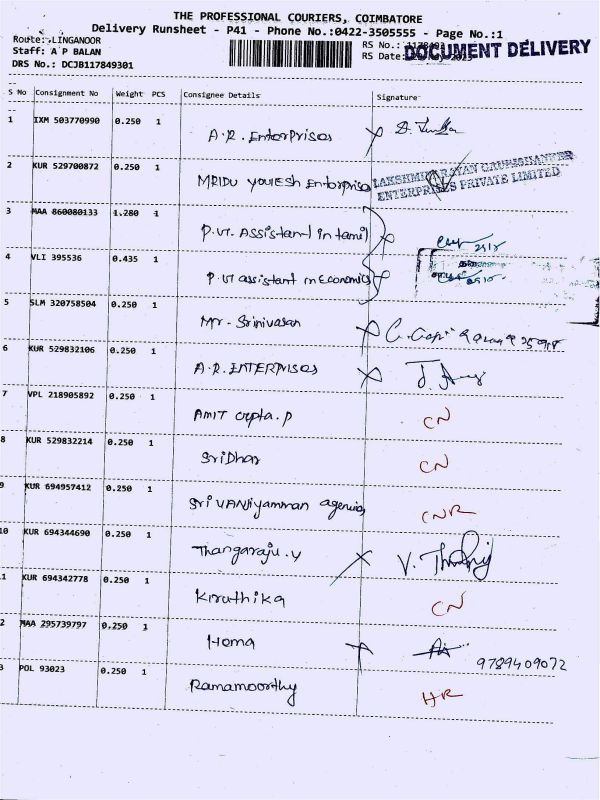 THE PROFESSIONAL COURIERS, COIMBATORE
Delivery Runsheet - P41 - Phone No.:0422-3505555 - Page No.:1
Route: LINGANOOR
RS No.:
DOCUMENT DELIVERY
Staff: A P BALAN
RS Date:
DRS No.: DCJB117849301
S No Consignment No Weight PCS Consignee Details Signature
1 IXM 503770990 0.250 1 A.R. Enterprises
2 KUR 529700872 0.250 1 MRIDU YOUIESH Enterprises
LAKSHMINARAYAN GAURISHANKER
ENTERPRISES PRIVATE LIMITED
3 MAA 860080133 1.280 1 P.VT. ASSistant in tamil
4 VLI 395536 0.435 1 P.VT assistant in Economics
5 SLM 320758504 0.250 1 Mr. Srinivasan
6 KUR 529832106 0.250 1 A.R. ENTERPRISES
7 VPL 218905892 0.250 1 AMIT Gupta.P CN
8 KUR 529832214 0.250 1 SriDhar CN
9 KUR 694957412 0.250 1 Sri VANJiyamman agencies CNR
10 KUR 694344690 0.250 1 Thangaraju.y
1 KUR 694342778 0.250 1 Kiruthika CN
2 MAA 295739797 0.250 1 Homa 9789409072
3 POL 93023 0.250 1 Ramamoorthy HR